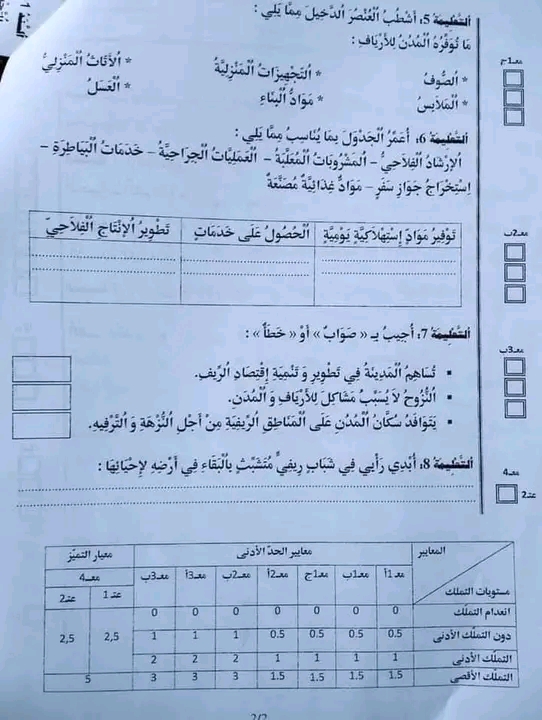 التعليمة 5: أَشْطُبُ الْعُنْصُرَ الدَّخِيلَ مِمَّا يَلِي :
مَا تُوَفِّرُهُ الْمُدُنُ لِلْأَرْيَافِ :
* الصُّوفُ * التَّجْهِيزَاتُ الْمَنْزِلِيَّةُ * الْأَثَاثُ الْمَنْزِلِيُّ
* الْمَلَابِسُ * مَوَادُّ الْبِنَاءِ * الْعَسَلُ
معـ1ج
التعليمة 6: أُعَمِّرُ الْجَدْوَلَ بِمَا يُنَاسِبُ مِمَّا يَلِي :
الْإِرْشَادُ الْفِلَاحِيُّ – الْمَشْرُوبَاتُ الْمُعَلَّبَةُ – الْعَمَلِيَّاتُ الْجِرَاحِيَّةُ – خَدَمَاتُ الْبَيَاطِرَةِ –
اِسْتِخْرَاجُ جَوَازِ سَفَرٍ – مَوَادٌّ غِذَائِيَّةٌ مُصَنَّعَةٌ
معـ2ب
تَوْفِيرُ مَوَادَّ اِسْتِهْلَاكِيَّةٍ يَوْمِيَّةٍ الْحُصُولُ عَلَى خَدَمَاتٍ تَطْوِيرُ الْإِنْتَاجِ الْفِلَاحِيِّ
التعليمة 7: أُجِيبُ بِـ « صَوَابٌ » أَوْ « خَطَأٌ » :
معـ3ب
▪ تُسَاهِمُ الْمَدِينَةُ فِي تَطْوِيرِ وَ تَنْمِيَةِ اِقْتِصَادِ الرِّيفِ.
▪ النُّزُوحُ لَا يُسَبِّبُ مَشَاكِلَ لِلْأَرْيَافِ وَ الْمُدُنِ.
▪ يَتَوَافَدُ سُكَّانُ الْمُدُنِ عَلَى الْمَنَاطِقِ الرِّيفِيَّةِ مِنْ أَجْلِ النُّزْهَةِ وَ التَّرْفِيهِ.
التعليمة 8: أُبْدِي رَأْيِي فِي شَبَابٍ رِيفِيٍّ مُتَشَبِّثٍ بِالْبَقَاءِ فِي أَرْضِهِ لِإِحْيَائِهَا :
معـ4
عـ2
المعايير معايير الحدّ الأدنى معيار التميّز
معـ1أ معـ1ب معـ1ج معـ2أ معـ2ب معـ3أ معـ3ب معـ4
مستويات التملك عـ1 عـ2
انعدام التملك 0 0 0 0 0 0 0
دون التملّك الأدنى 0.5 0.5 0.5 0.5 1 1 1 2,5 2,5
التملّك الأدنى 1 1 1 1 2 2 2
التملّك الأقصى 1.5 1.5 1.5 1.5 3 3 3 5
2/2